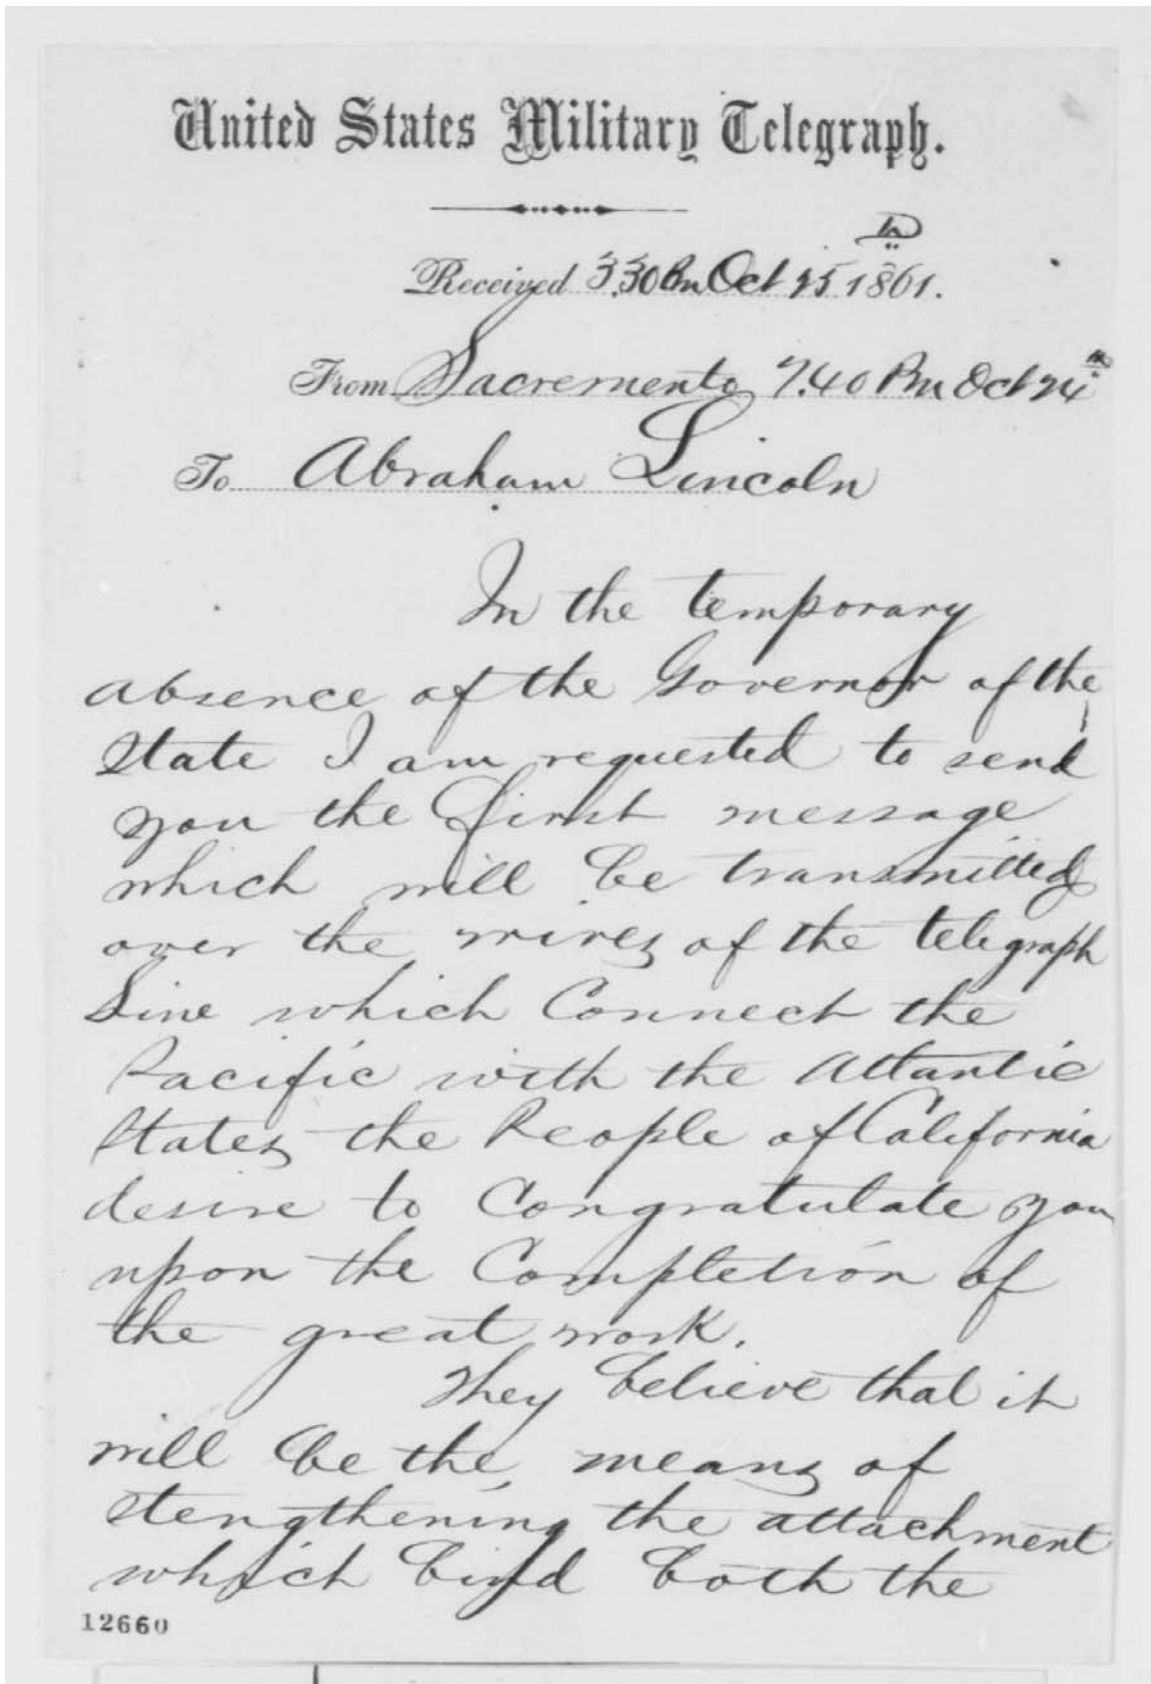 United States Military Telegraph.
Received 3.30 Pm Oct 25th 1861.
From Sacremento 7.40 Pm Oct 24th
To Abraham Lincoln
In the temporary
absence of the Governor of the
State I am requested to send
you the first message
which will be transmitted
over the wires of the telegraph
Line which Connect the
Pacific with the Atlantic
States the People of California
desire to Congratulate you
upon the Completion of
the great work.
They believe that it
will be the means of
stengthening the attachment
which bind both the
12660